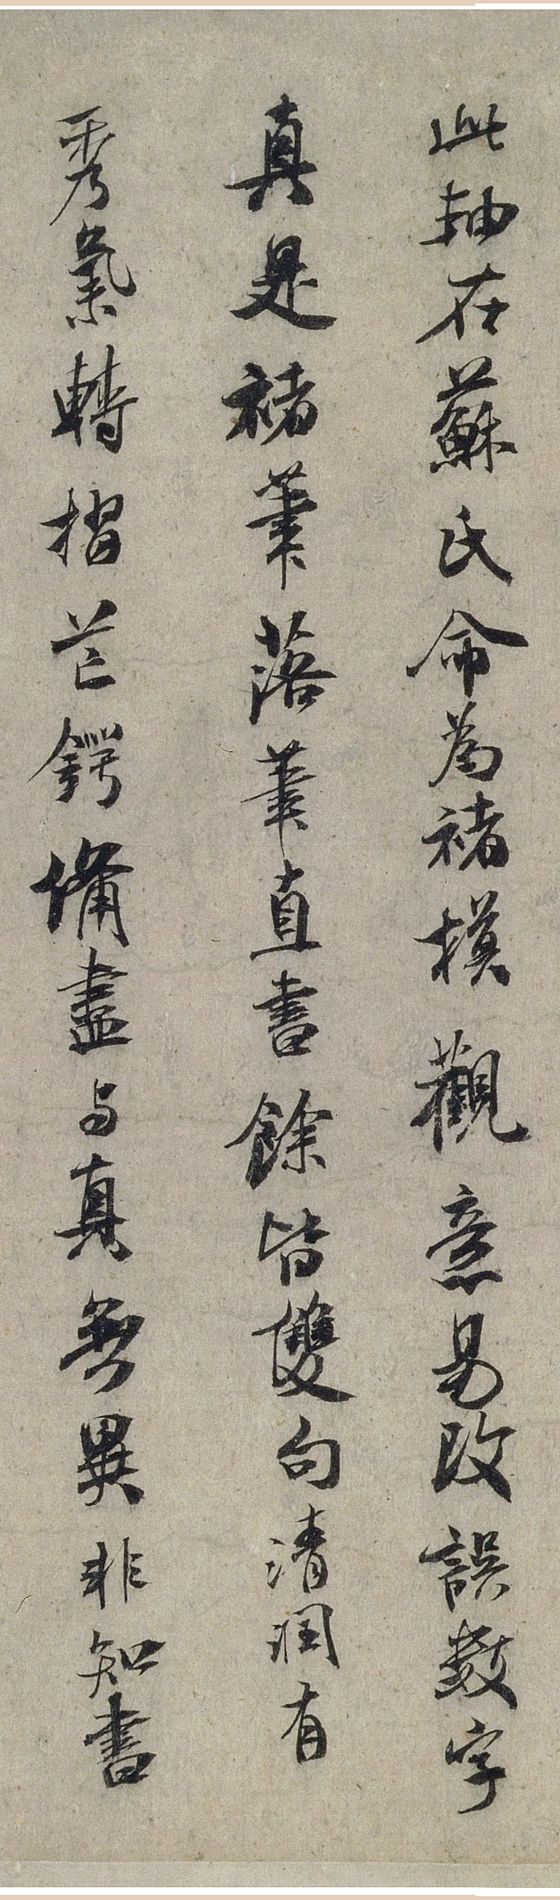 此軸在蘇氏命為褚摸觀意易改誤數字
真是褚筆落筆直書餘皆雙勾清潤有
秀氣轉摺芒鍔備盡与真無異非知書